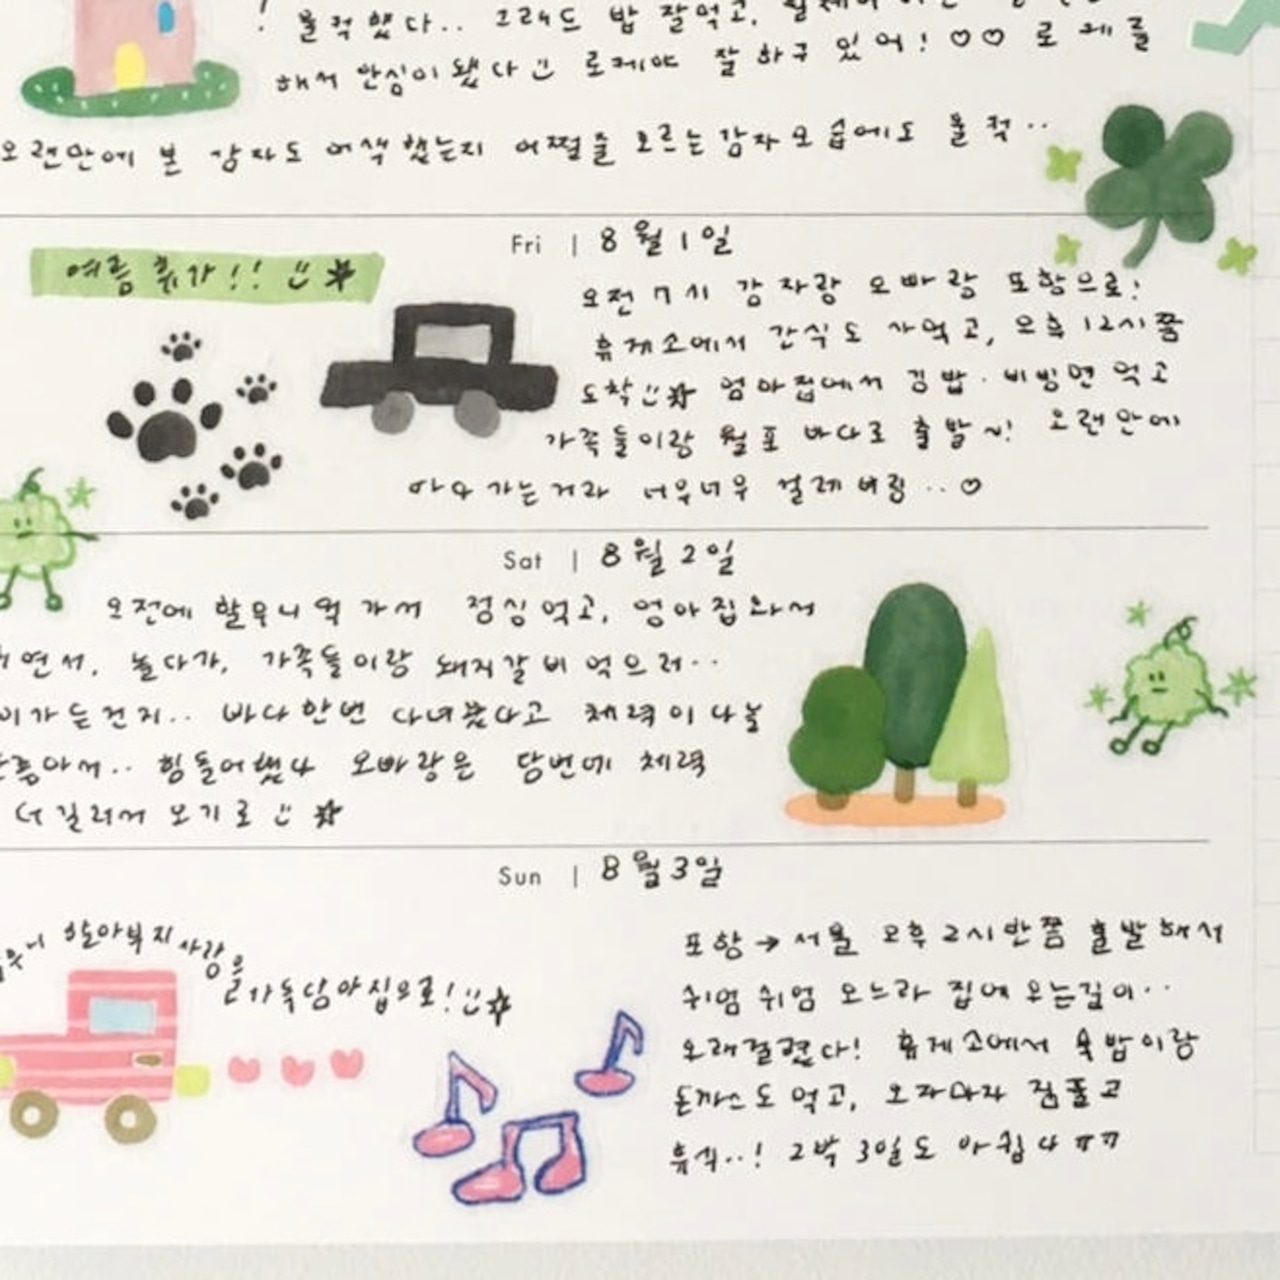 울컥했다.. 그래도 밥 잘먹고,
해서 안심이 됐다 로케야 잘 하구 있어! ♡♡ 로케를
오랜만에 본 감자도 어색했는지 어쩔줄 모르는 감자모습에도 울컥..
Fri | 8월 1일
여름 휴가!!
오전 7시 감자랑 오빠랑 포항으로!
휴게소에서 간식도 사먹고, 오후 12시쯤
도착 엄마집에서 김밥·비빔면 먹고
가족들이랑 월포 바다로 출발~! 오랜만에
바다 가는거라 너무너무 설레버림..♡
Sat | 8월 2일
오전에 할무니댁 가서 점심 먹고, 엄마집 와서
면서, 놀다가, 가족들이랑 돼지갈비 먹으러..
비가 든건지.. 바다 한번 다녀왔다고 체력이 나눌
안좋아서.. 힘들어했다 오빠랑은 담번에 체력
더 길러서 보기로
Sun | 8월 3일
할아부지 사랑을
가득담아 집으로!
포항 → 서울 오후 2시반쯤 출발해서
쉬엄 쉬엄 오느라 집에 오는길이..
오래걸렸다! 휴게소에서 육밥이랑
돈까스도 먹고, 오자마자 짐풀고
휴식..! 2박 3일도 아쉽다 ㅠㅠ